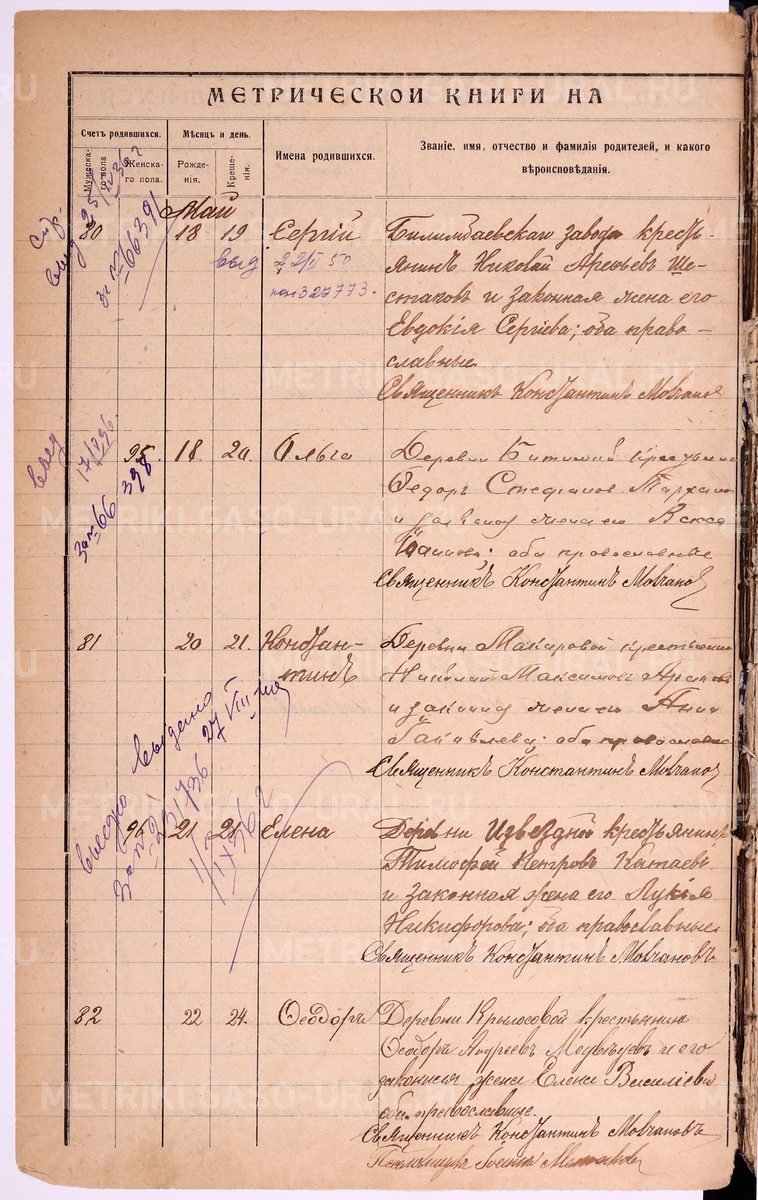 МЕТРИЧЕСКОЙ КНИГИ НА
Счетъ родившихся.
Мужеска-
го пола
Женска-
го пола.
Мѣсяцъ и день.
Рожде-
нія.
Креще-
нія.
Имена родившихся.
Званіе, имя, отчество и фамилія родителей, и какого
вѣроисповѣданія.
Май
80 18 19 Сергій Билимбаевскаго завода кресть-
янинъ Николай Арсеньевъ Ше-
стаковъ и законная жена его
Евдокія Сергіева; оба право-
славные.
Священникъ Константинъ Мовчановъ
выд 22/V 50
327773.
66391
95. 18. 20. Ольга Деревни крестьянинъ
Ѳедоръ Стефановъ
и законная жена его
оба православные
Священникъ Константинъ Мовчановъ
выд
398
66
81 20 21. Констан-
тинъ
Деревни Макаровой крестьянинъ
Николай Максимовъ
и законная жена его Анна
оба православные
Священникъ Константинъ Мовчановъ
выдано
27 VIII
96 21 21 Елена Деревни Извѣздной крестьянинъ
Тимофей Катаевъ
и законная жена его Лукія
Никифорова; оба православные.
Священникъ Константинъ Мовчановъ
82 22 24. Ѳеодоръ Деревни Крылосовой крестьянинъ
Ѳеодоръ Андреевъ Медвѣдевъ и его
законная жена Елена Василіева
оба православные.
Священникъ Константинъ Мовчановъ
METRIKI.GASO-URAL.RU